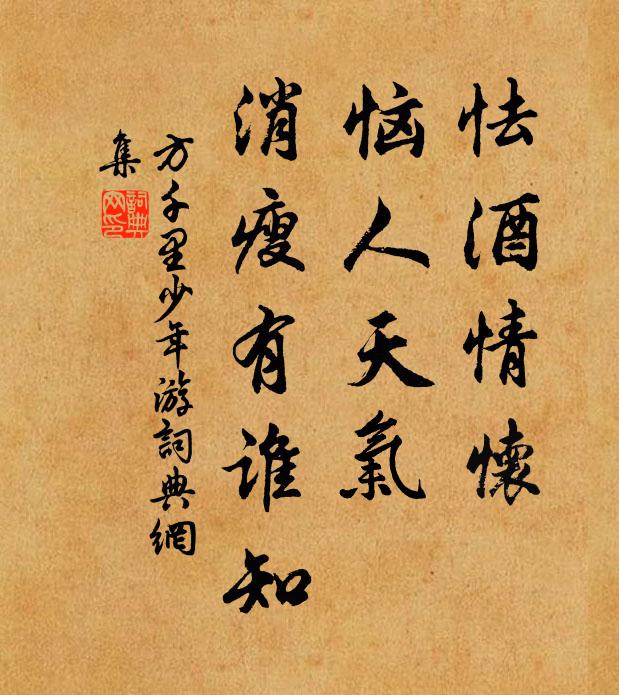 怯酒情懷
恼人天氣
消瘦有谁知
方千里少年游詞典網
集
詞典网印